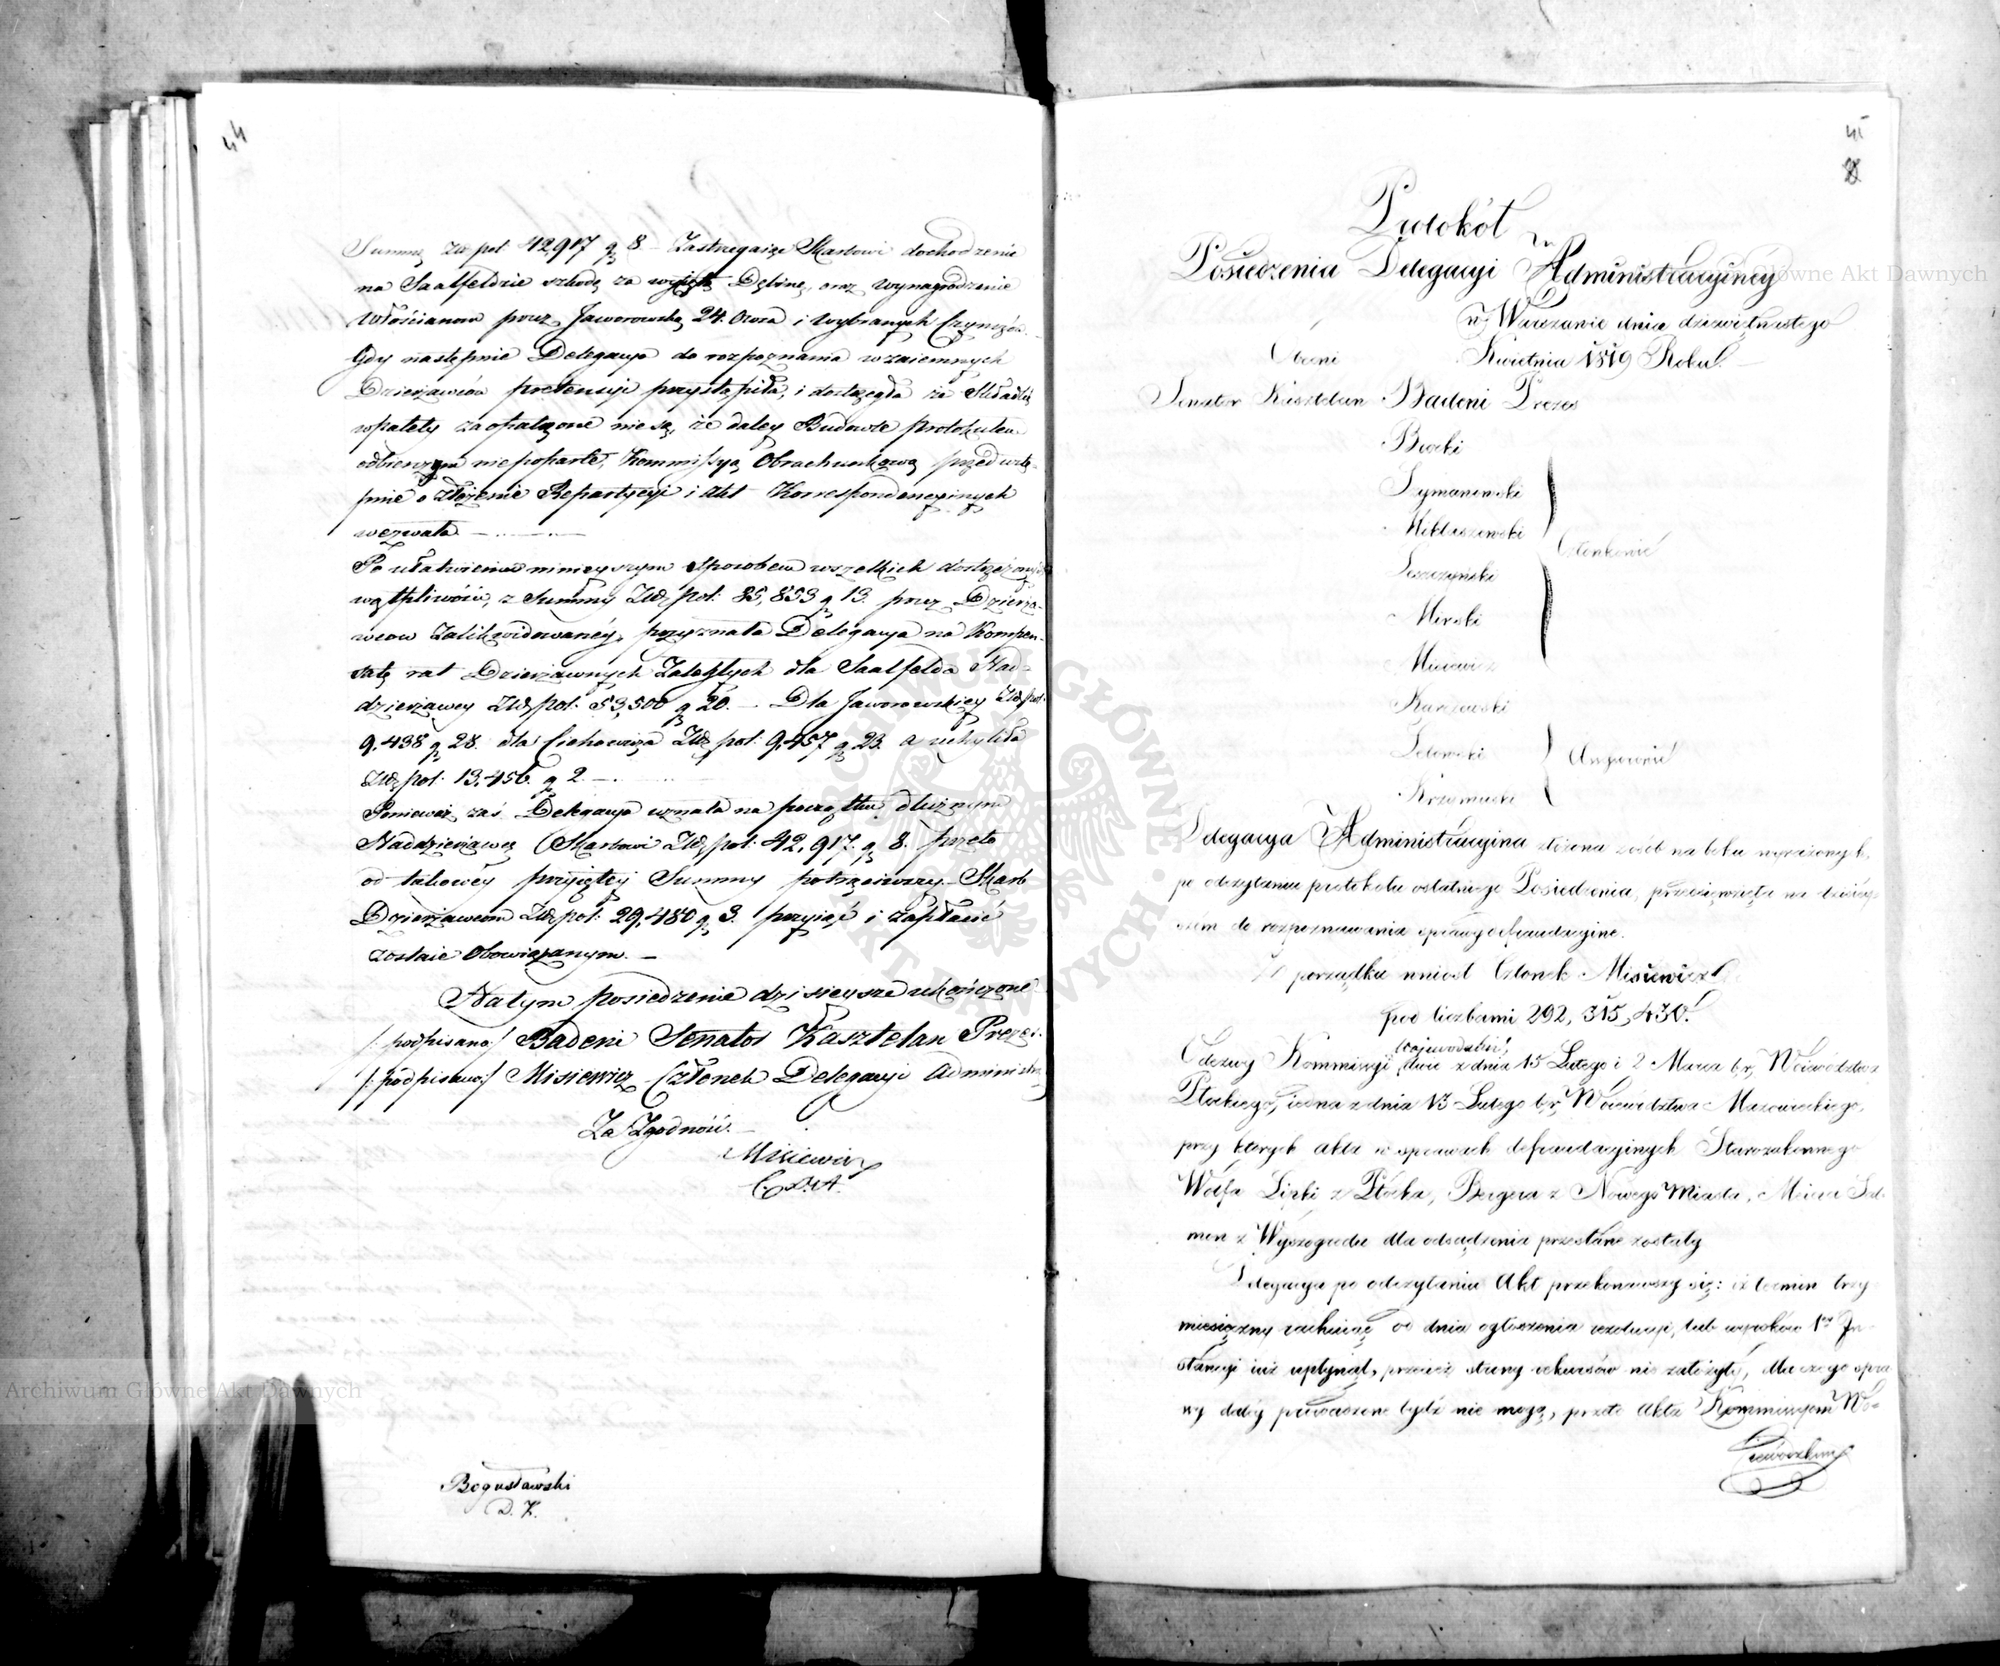 44
Summę Złł. pol. 42,917 g. 8 – Zastrzegaiąc Skarbowi dochodzenie
na Saalfeldzie szkodę za wyciętą Dębinę, oraz wynagrodzenie
Włościanom przez Jaworowską 24. Owsa i wybranych Czynszów.
Gdy następnie Delegacya do rozpoznania wzaiemnych
Dzierżawców pretensyi przystąpiła, i dostrzegła że Składki
wpalety zaopatrzone nie są, że daley Budowle protokułem
odbierczym niepoparte, Kommissyą Obrachunkową przedwstę-
pnie o złożenie Repartycyi i Akt Korrespondencyinych
wezwała. –
Po ułatwieniu ninieyszym sposobem wszelkich dostrzeżonych
wątpliwości, z Summy Złł. pol. 85,853 g. 13. przez Dzierża-
wców zalikwidowaney, przyznała Delegacya na Kompen-
satę rat Dzierżawnych Zaległych dla Saalfelda Nad-
dzierżawcy Złł. pol. 53,500 g. 20. – Dla Jaworowskiey Złł. pol.
9,438 g. 28. dla Cichowicza Złł. pol. 9,457 g. 23. a uchyliła
Złł. pol. 13,456. g. 2. –
Ponieważ zaś Delegacya uznała na początku dłużnym
Naddzierżawcę Skarbowi Złł. pol. 42,917. g. 8. przeto
od takowey przyiętey Summy potrąciwszy Skarb
Dzierżawcom Złł. pol. 29,480 g. 3. przyiąć i zapłacić
zostaie Obowiązanym. –
Natym posiedzenie dzisieysze ukończone
/: podpisano :/ Badeni Senator Kasztelan Prezes.
/: podpisano :/ Misiewicz Członek Delegacyi Administra
Za Zgodność.
Misiewicz
C. D. A.
Bogusławski
D. K.
45
8
Protokół
Posiedzenia Delegacyi Administracyiney
w Warszawie dnia dziewiętnastego
Obecni Kwietnia 1819 Roku. –
Senator Kasztelan Badeni Prezes
Brocki
Szymanowski
Miklaszewski
Członkowie
Leszczyński
Mirski
Misiewicz
Karczewski
Zelewski
Assessorowie
Krzemucki
Delegacya Administracyina złożona z osób na boku wyrażonych,
po odczytaniu protokołu ostatniego Posiedzenia, przeciewzięła na dzisiey-
szem do rozpoznawania sprawy defraudacyine.
Z porządku wniosł Członek Misiewicz
pod liczbami 292, 315, 430.
Wojewodzki
Odezwy Kommissyi dwie z dnia 15 Lutego i 2 Marca br. Woiewództwa
Płockiego, iedna z dnia 13 Lutego br. Woiewództwa Mazowieckiego,
przy których akta w sprawach defraudacyinych Starozakonnego
Wolfa Lipki z Płocka, Bergera z Nowego Miasta, Meiera Sal-
mon z Wyszogrodu dla odsądzenia przesłane zostały
Delegacya po odczytaniu Akt przekonawszy się: iż termin trzy
miesięczny rachuiąc od dnia ogłoszenia rezolucyi, lub wyroków 1ey In-
stancyi iuż upłynął, przecież strony rekursów nie założyły, dla czego spra
wy daley prowadzone bydź nie mogą, przeto Akta Kommissyom Wo-
iewodzkim